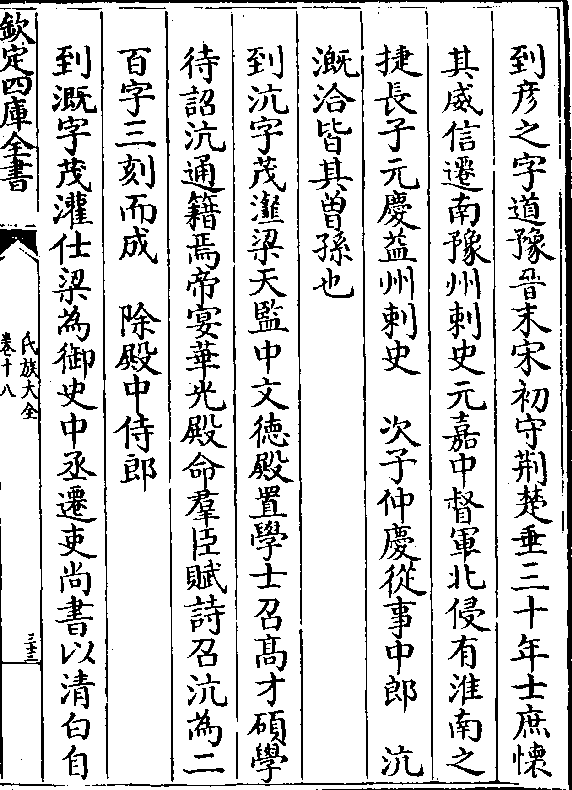 到彦之字道豫晉末宋初守荆楚垂三十年士庶懷
其威信遷南豫州刺史元嘉中督軍北侵有淮南之
捷長子元慶益州刺史　次子仲慶從事中郎　沆
溉洽皆其曽孫也
到沆字茂瀣梁天監中文徳殿置學士召髙才碩學
待詔沆通籍焉帝宴華光殿命羣臣賦詩召沆為二
百字三刻而成　除殿中侍郎
到溉字茂灌仕梁為御史中丞遷吏尚書以清白自
欽定四庫全書
氏族大全
卷十八
三十三